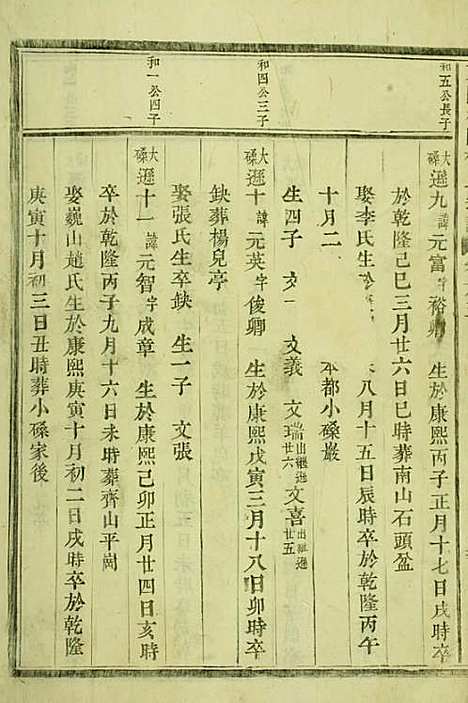 和五公長子
大磉遜九諱元富字裕卿 生於康熙丙子正月十七日戌時卒
於乾隆己巳三月廿六日巳時葬南山石頭盆
娶李氏生於 八月十五日辰時卒於乾隆丙午
十月二 本都小磉巖
和四公三子
大磉遜十諱元英字俊卿 生於康熙戊寅三月十八日卯時卒
生四子 文 文義 文瑞出繼遜廿六 文喜出繼遜廿五
缺葬楊兒亭
娶張氏生卒缺 生一子 文張
和一公四子
大磉遜十一諱元智字成章 生於康熙己卯正月廿四日亥時
卒於乾隆丙子九月十六日未時葬齊山平崗
娶巍山趙氏生於康熙庚寅十月初二日戌時卒於乾隆
庚寅十月初三日丑時葬小磉家後